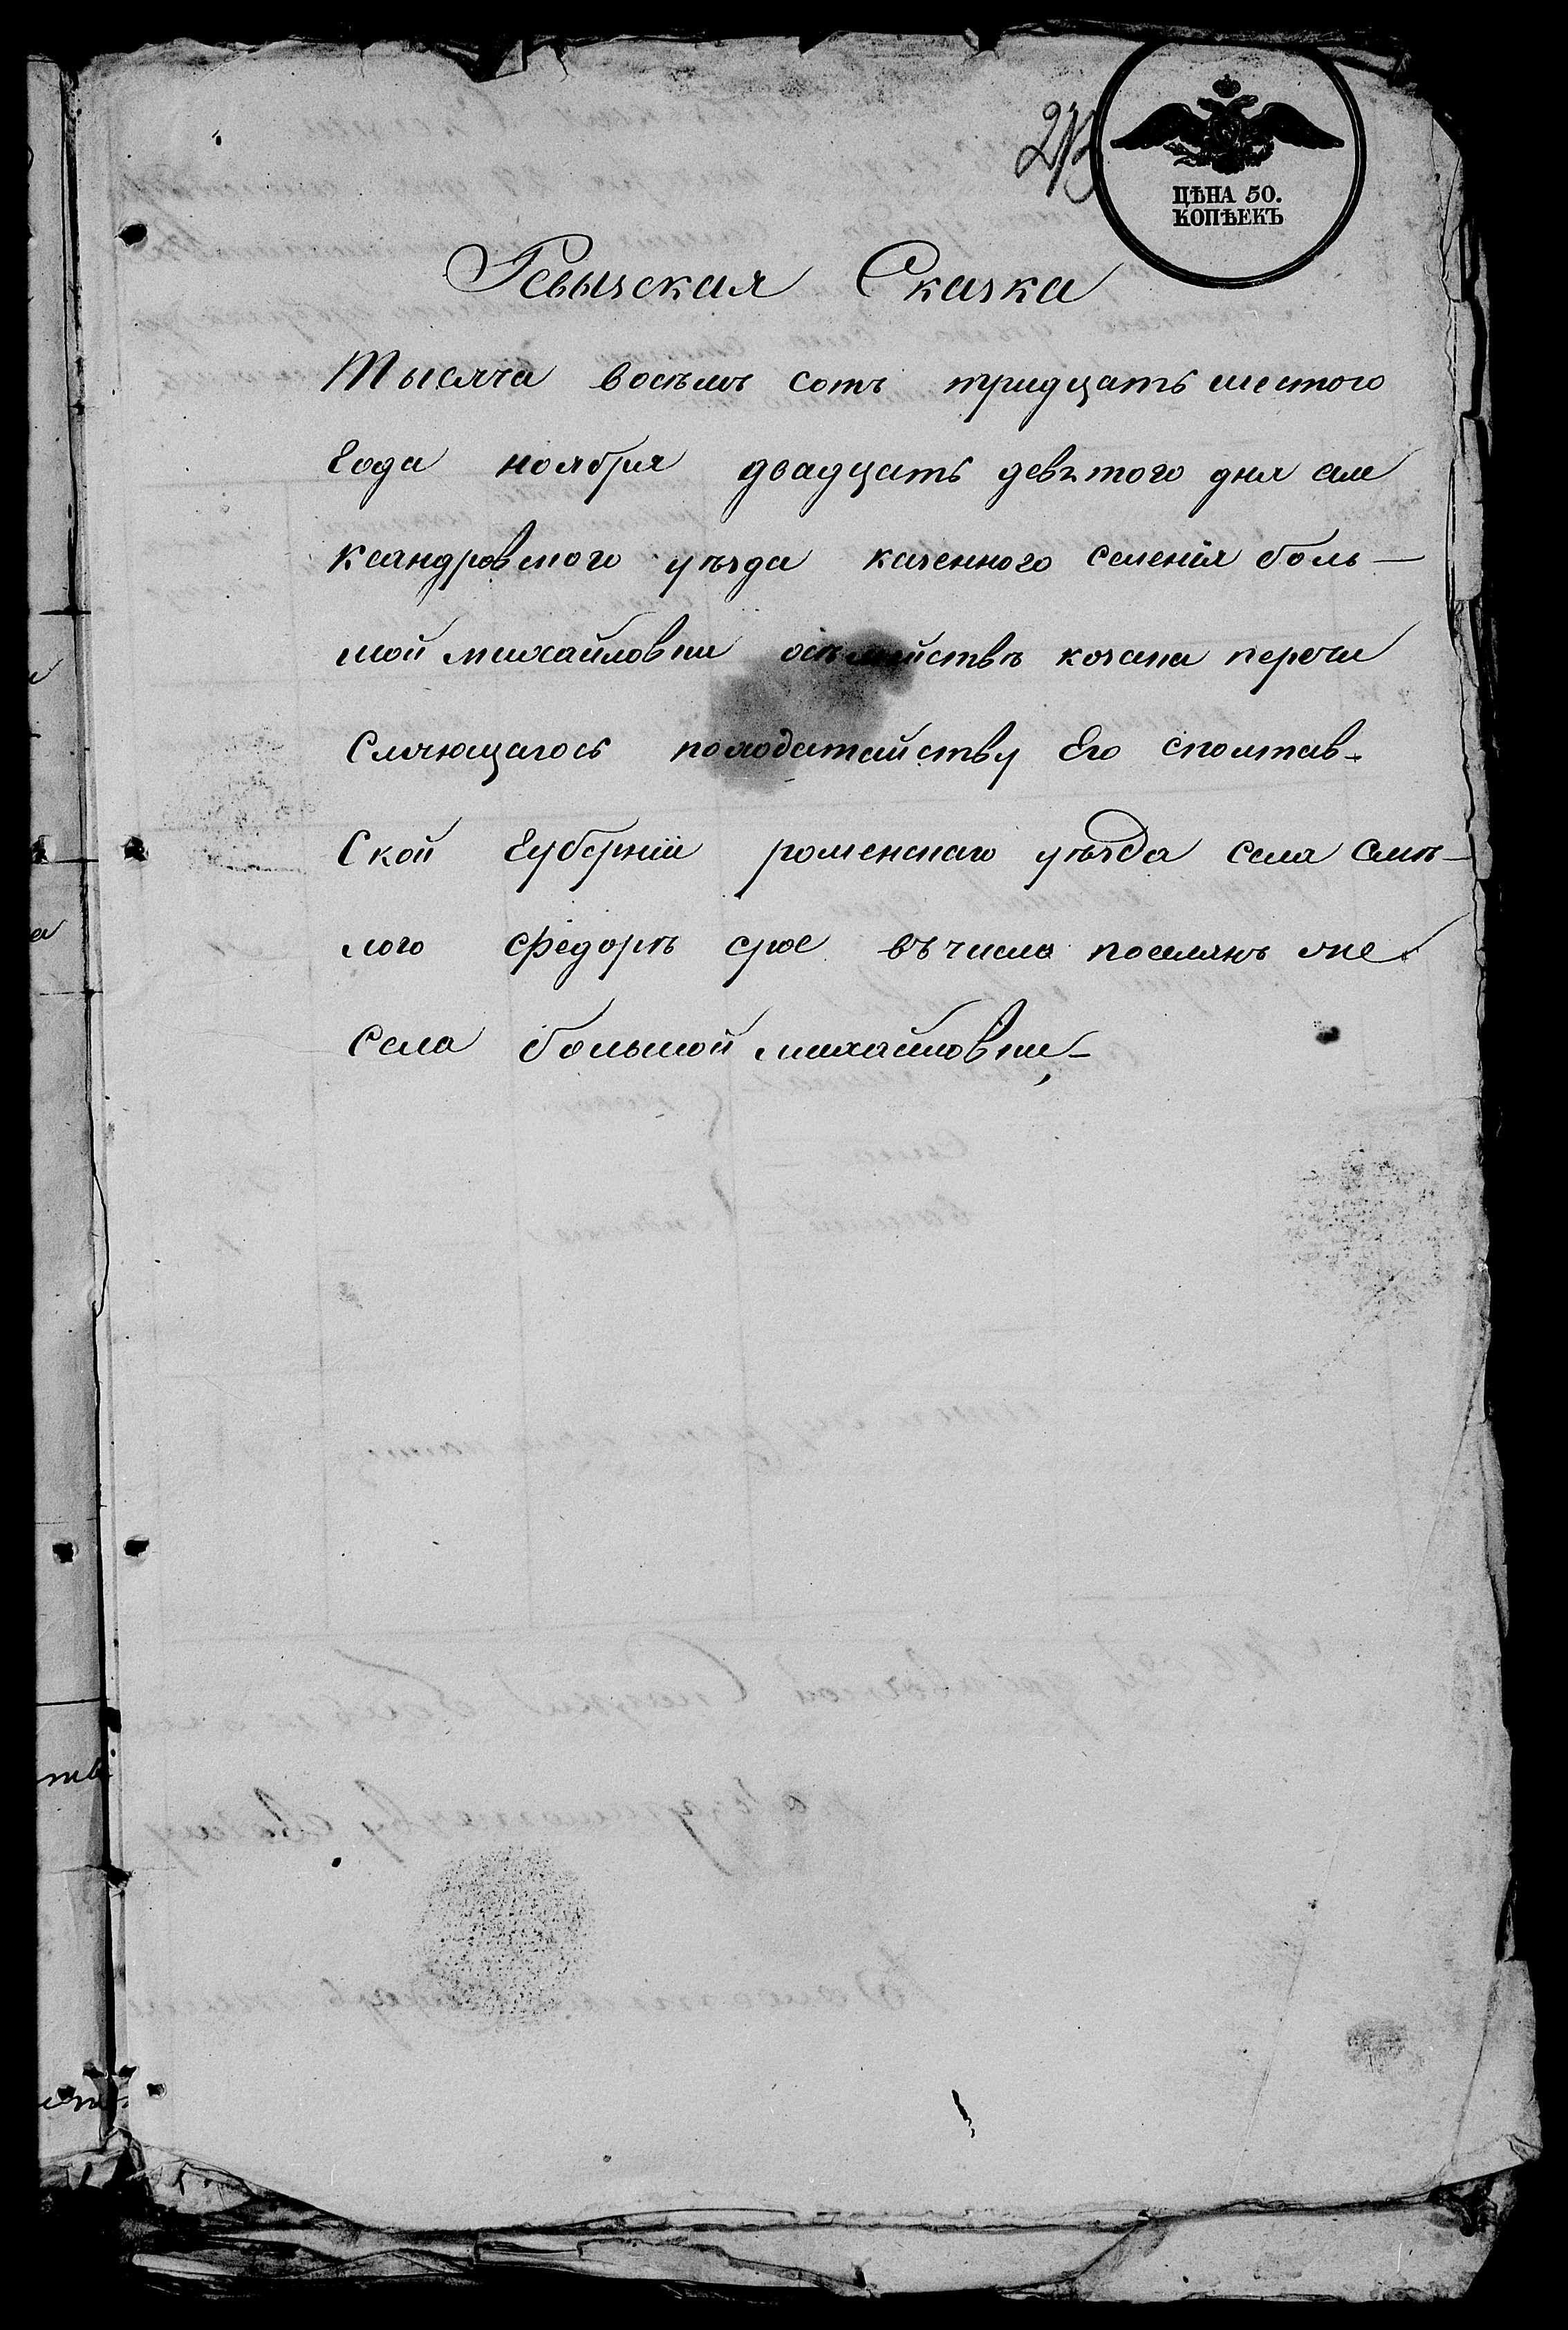 ЦѢНА 50.
КОПѢЕКЪ
Ревызская Сказка
Тысяча восемъ сотъ тридцать шестого
Года ноября двадцать девятого дня але
ксандровского уѣзда казенного селенія боль—
шой михайловки осѣмействѣ козака перечи
Сляющагося походатайству Его сполтав-
Ской Губерніи роменскаго уѣзда села Смѣ—
лого Федорѣ срое въ число поселянъ тоже
Села большой михайловки—